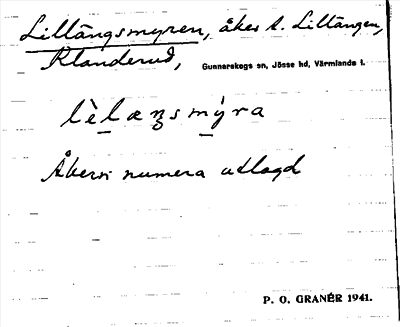 Lillängsmyren, åker t. Lillängen,
Klanderud, Gunnarskogs sn, Jösse hd, Värmlands l.
lè̱læŋsmý̱ra
Åkern numera utlagd
P. O. GRANÉR 1941.